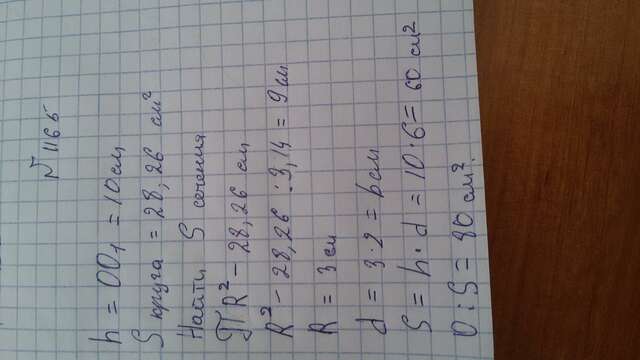 № 1165
h = OO₁ = 10 см
S круга = 28,26 см²
Найти S сечения
ПR² - 28,26 см
R² - 28,26 : 3,14 = 9 см
R = 3 см
d = 3·2 = 6 см
S = h·d = 10·6 = 60 см²
О: S = 80 см².